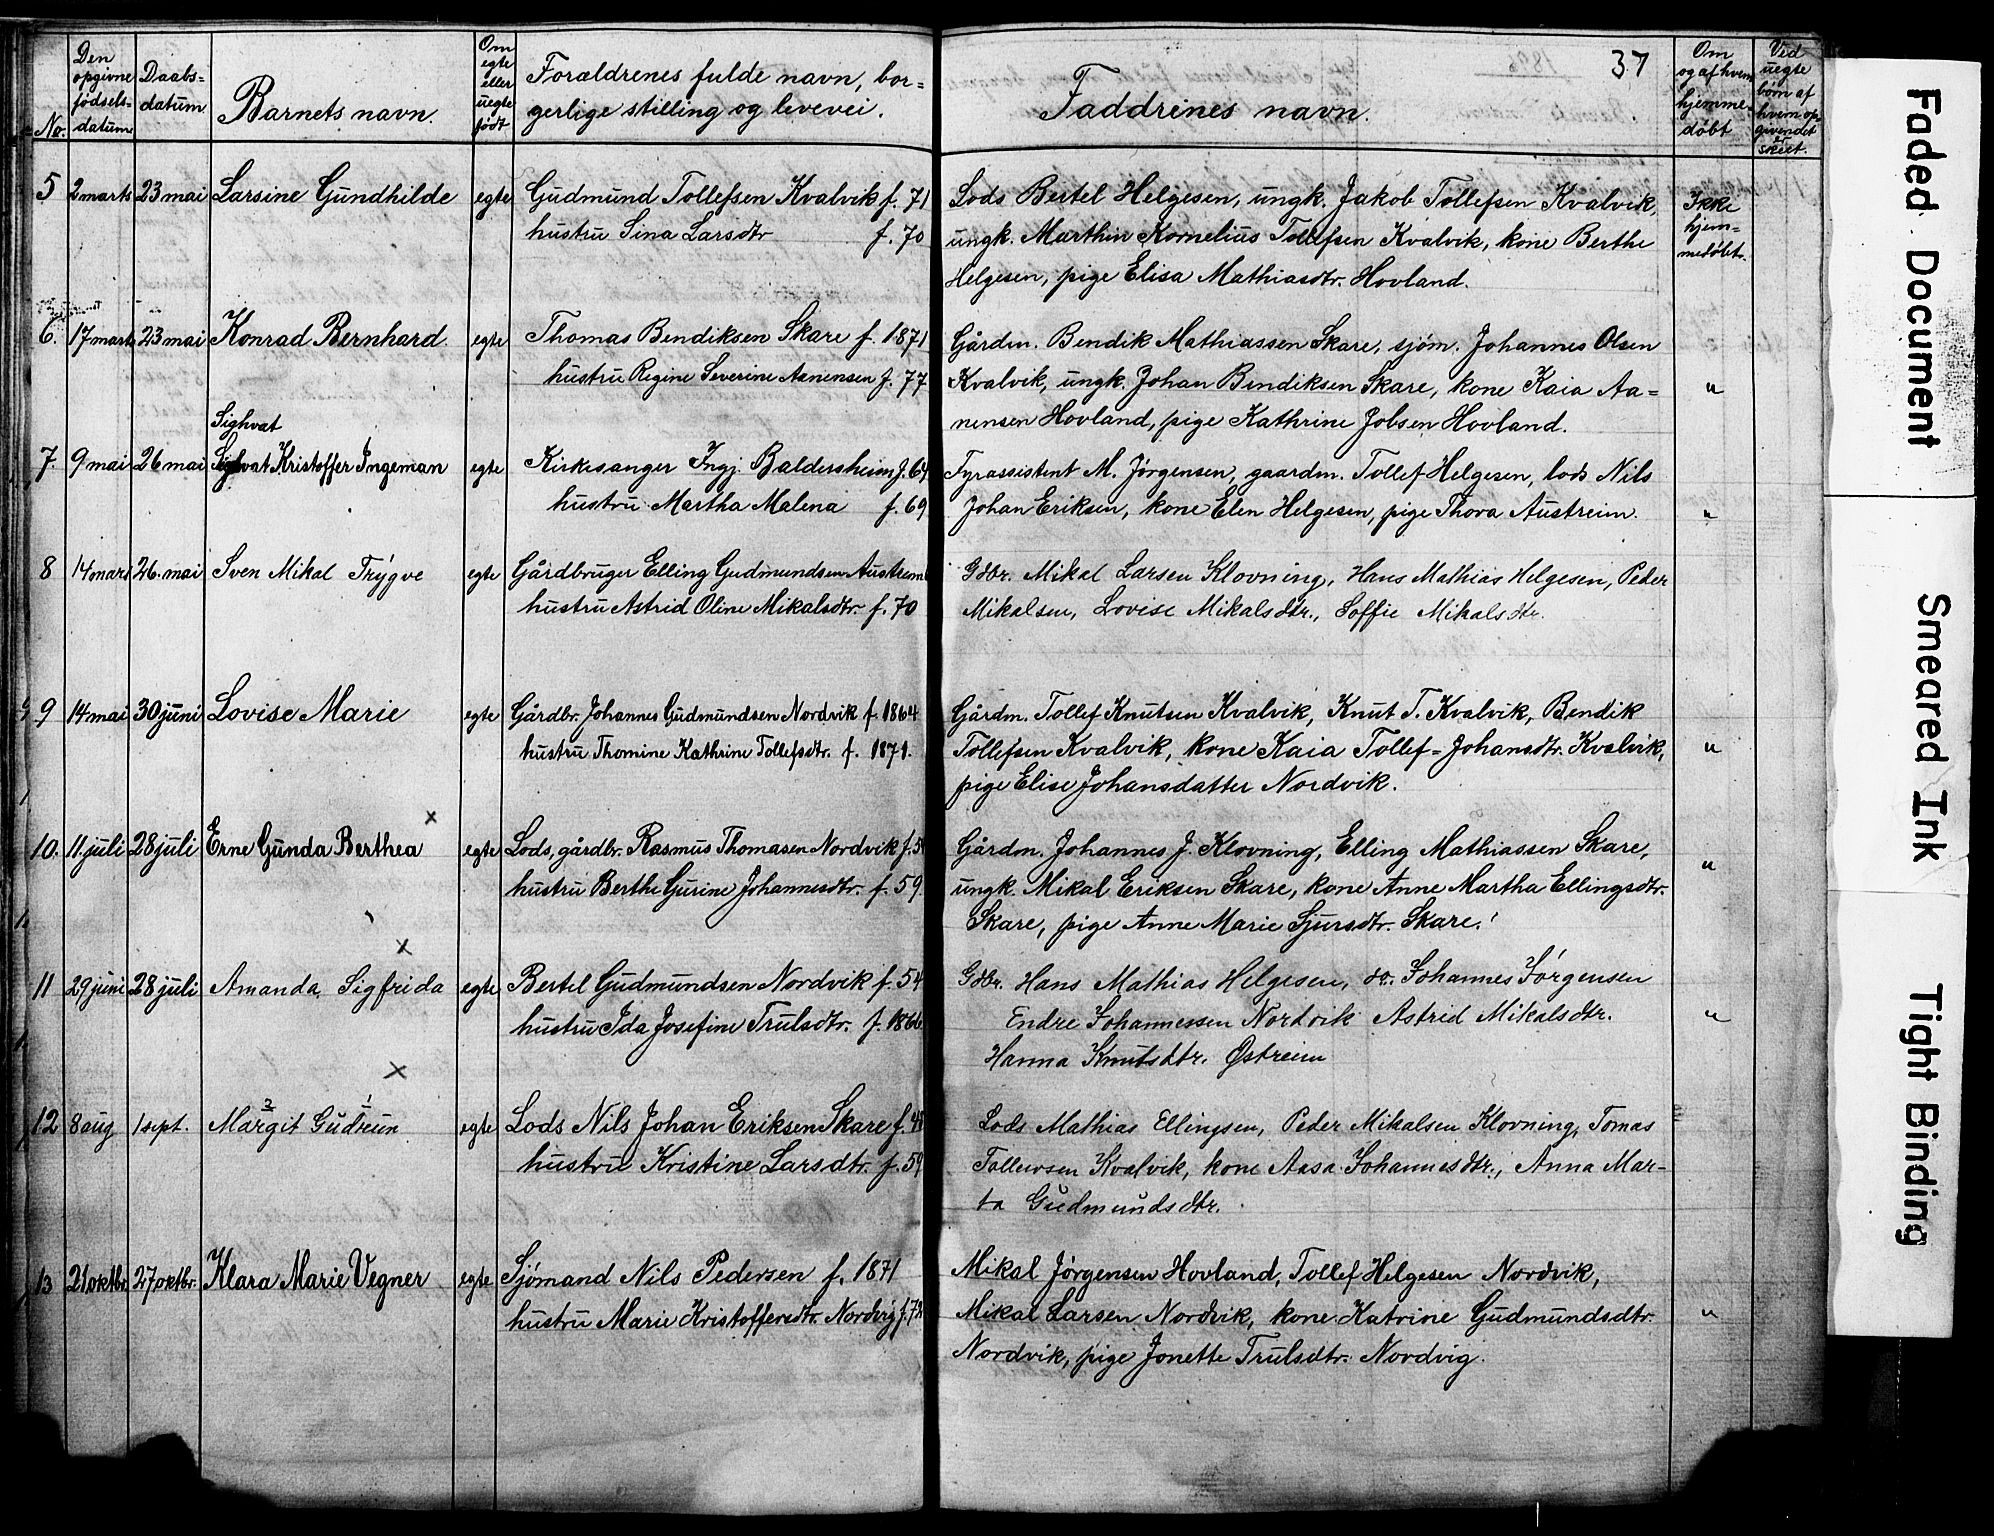 37
No.
Den opgivne fødsels-datum
Daabs-datum
Barnets navn.
Om egte eller uegte født
Forældrenes fulde navn, bor-
gerlige stilling og levevei.
Faddrenes navn.
Om og af hvem hjemme-døbt
Ved uegte børn af hvem op-givendet er skeet.
5 2 marts 23 mai Larsine Gundhilde egte Gudmund Tollefsen Kvalvik f. 71
hustru Sina Larsdtr f. 70
Lods Bertel Helgesen, ungk. Jakob Tollefsen Kvalvik,
ungk. Marthin Kornelius Tollefsen Kvalvik, kone Berthe
Helgesen, pige Elisa Mathiasdtr. Hovland.
Ikke
hjem-
medøbt.
6. 17 marts 23 mai Konrad Bernhard. egte Thomas Bendiksen Skare f. 1871
hustru Regine Severine Aanensen f. 77
Gårdm. Bendik Mathiassen Skare, sjøm. Johannes Olsen
Kvalvik, ungk. Johan Bendiksen Skare, kone Kaia Aa=
nensen Hovland, pige Kathrine Jobsen Hovland.
"
Sighvat
7. 9 mai 26 mai Sighvat Kristoffer Ingeman egte Kirkesanger Ingj. Baldersheim f. 64
hustru Martha Malena f. 69
Fyrassistent M. Jørgensen, gaardm. Tollef Helgesen, lods Nils
Johan Eriksen, kone Elen Helgesen, pige Thora Austreim.
"
8 14 mars 26. mai Sven Mikal Trygve egte Gårdbruger Elling Gudmundsen Austreim
hustru Astrid Oline Mikalsdtr. f. 70
Gdbr. Mikal Larsen Klovning, Hans Mathias Helgesen, Peder
Mikalsen, Lovise Mikalsdtr., Soffie Mikalsdtr.
9 14 mai 30 juni Lovise Marie egte Gårdbr. Johannes Gudmundsen Nordvik f. 1864
hustru Thomine Kathrine Tollefsdtr. f. 1871.
Gårdm. Tollef Knutsen Kvalvik, Knut T. Kvalvik, Bendik
Tollefsen Kvalvik, kone Kaia Tollef=Johansdtr. Kvalvik,
pige Elise Johansdatter Nordvik.
"
x
10. 11. juli 28 juli Erne Gunda Berthea egte Lods, gårdbr. Rasmus Thomasen Nordvik
hustru Berthe Gurine Johannesdtr. f. 59.
Gårdm. Johannes J. Klovning, Elling Mathiassen Skare,
ungk. Mikal Eriksen Skare, kone Anne Martha Ellingsdtr.
Skare, pige Anne Marie Sjursdtr. Skare.
"
x
11 29 juni 28 juli Amanda Sigfrida egte Bertel Gudmundsen Nordvik f. 54
hustru Ida Josefine Trulsdtr. f. 1866
Gdbr. Hans Mathias Helgesen, do. Johannes Jørgensen
Endre Johannessen Nordvik Astrid Mikalsdtr.
Hanna Knutsdtr. Østreim
"
x
2 1
12 8 aug 1 sept. Margit Gudrun egte Lods Nils Johan Eriksen Skare
hustru Kristine Larsdtr. f. 59
Lods Mathias Ellingsen, Peder Mikalsen Klovning, Tomas
Tollevsen Kvalvik, kone Aasa Johannesdtr., Anna Mar-
ta Gudmundsdtr.
13 21 oktbr 27 oktbr. Klara Marie Vegner egte Sjømand Nils Pedersen f. 1871
hustru Marie Kristoffersdtr. Nordvig
Mikal Jørgensen Hovland, Tollef Helgesen Nordvik,
Mikal Larsen Nordvik, kone Katrine Gudmundsdtr.
Nordvik, pige Jonette Trulsdtr. Nordvig.
"
Faded Document
Smeared Ink
Tight Binding